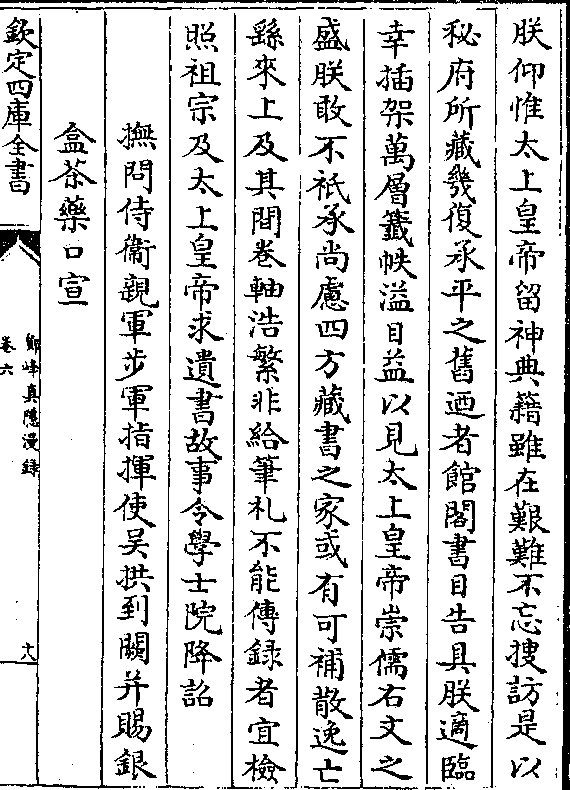 朕仰惟太上皇帝留神典籍雖在艱難不忘搜訪是以
秘府所藏㡬復承平之舊迺者館閣書目告具朕適臨
幸插架萬層籤帙溢目益以見太上皇帝崇儒右文之
盛朕敢不祇承尚慮四方藏書之家或有可補散逸亡
繇來上及其間卷軸浩繁非給筆札不能傳錄者宜檢
照祖宗及太上皇帝求遺書故事令學士院降詔
撫問侍衞親軍步軍指揮使吳拱到闕并賜銀
盒茶藥口宣
欽定四庫全書
鄮峰真隱漫錄
卷六
十八